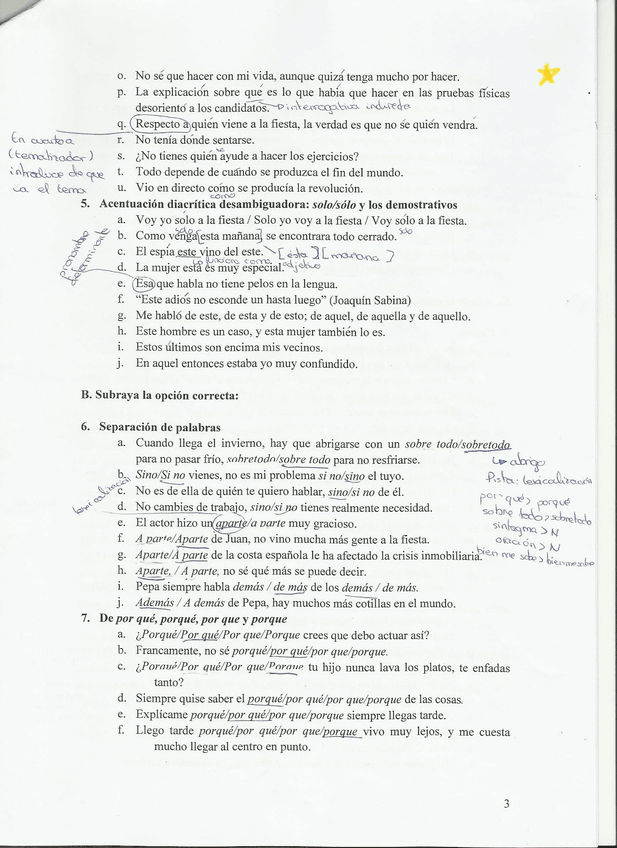 o. No sé que hacer con mi vida, aunque quizá tenga mucho por hacer.
p. La explicación sobre qué es lo que había que hacer en las pruebas físicas
desorientó a los candidatos. interrogativa indirecta
q. Respecto a quién viene a la fiesta, la verdad es que no se quién vendrá.
En cuanto a
(tematizador)
introduce de que
va el tema
r. No tenía dónde sentarse.
s. ¿No tienes quién te ayude a hacer los ejercicios?
t. Todo depende de cuándo se produzca el fin del mundo.
u. Vio en directo cómo se producía la revolución.
como
5. Acentuación diacrítica desambiguadora: solo/sólo y los demostrativos
a. Voy yo sólo a la fiesta / Solo yo voy a la fiesta / Voy sólo a la fiesta.
solo
b. Como venga [esta mañana], se encontrara todo cerrado. solo
c. El espía este vino del este. [ésta] [mañana]
funciona como adjetivo
d. La mujer está es muy especial.
pronombre
determinante
e. Esa que habla no tiene pelos en la lengua.
f. “Este adiós no esconde un hasta luego” (Joaquín Sabina)
g. Me habló de este, de esta y de esto; de aquel, de aquella y de aquello.
h. Este hombre es un caso, y esta mujer también lo es.
i. Estos últimos son encima mis vecinos.
j. En aquel entonces estaba yo muy confundido.
B. Subraya la opción correcta:
6. Separación de palabras
a. Cuando llega el invierno, hay que abrigarse con un sobre todo/sobretodo
para no pasar frío, sobretodo/sobre todo para no resfriarse.
abrigo
b. Sino/Si no vienes, no es mi problema si no/sino el tuyo.
Pista: lexicalización
lexicalización
c. No es de ella de quién te quiero hablar, sino/si no de él.
por qué > porqué
d. No cambies de trabajo, sino/si no tienes realmente necesidad.
sobre todo > sobretodo
e. El actor hizo un aparte/a parte muy gracioso.
sintagma > N
f. A parte/Aparte de Juan, no vino mucha más gente a la fiesta.
oración > N
g. Aparte/A parte de la costa española le ha afectado la crisis inmobiliaria.
bien me sabe > bienmesabe
h. Aparte, / A parte, no sé qué más se puede decir.
i. Pepa siempre habla demás / de más de los demás / de más.
j. Además / A demás de Pepa, hay muchos más cotillas en el mundo.
7. De por qué, porqué, por que y porque
a. ¿Porqué/Por qué/Por que/Porque crees que debo actuar así?
b. Francamente, no sé porqué/por qué/por que/porque.
c. ¿Porqué/Por qué/Por que/Porque tu hijo nunca lava los platos, te enfadas
tanto?
d. Siempre quise saber el porqué/por qué/por que/porque de las cosas.
e. Explícame porqué/por qué/por que/porque siempre llegas tarde.
f. Llego tarde porqué/por qué/por que/porque vivo muy lejos, y me cuesta
mucho llegar al centro en punto.
3